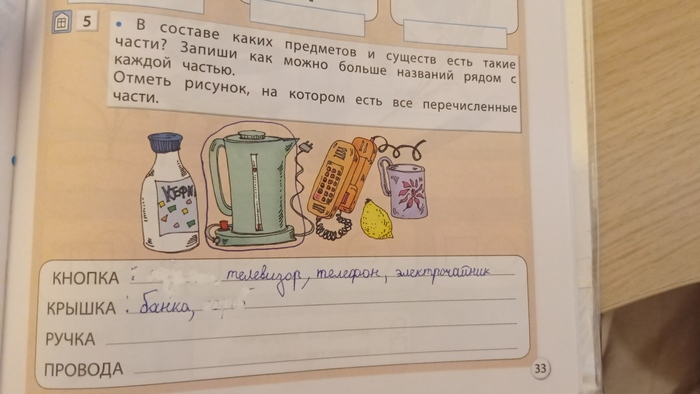 5 • В составе каких предметов и существ есть такие
части? Запиши как можно больше названий рядом с
каждой частью.
Отметь рисунок, на котором есть все перечисленные
части.
КЕФИ
КНОПКА : телевизор, телефон, электрочайник
КРЫШКА : банка,
РУЧКА
ПРОВОДА
33